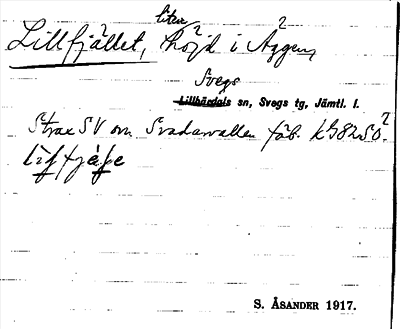 Lillfjället, liten höjd i Äggen,
Svegs
Lillhärdals sn, Svegs tg, Jämtl. l.
Strax SV om Svadavallen fäb.
S. ÅSANDER 1917.